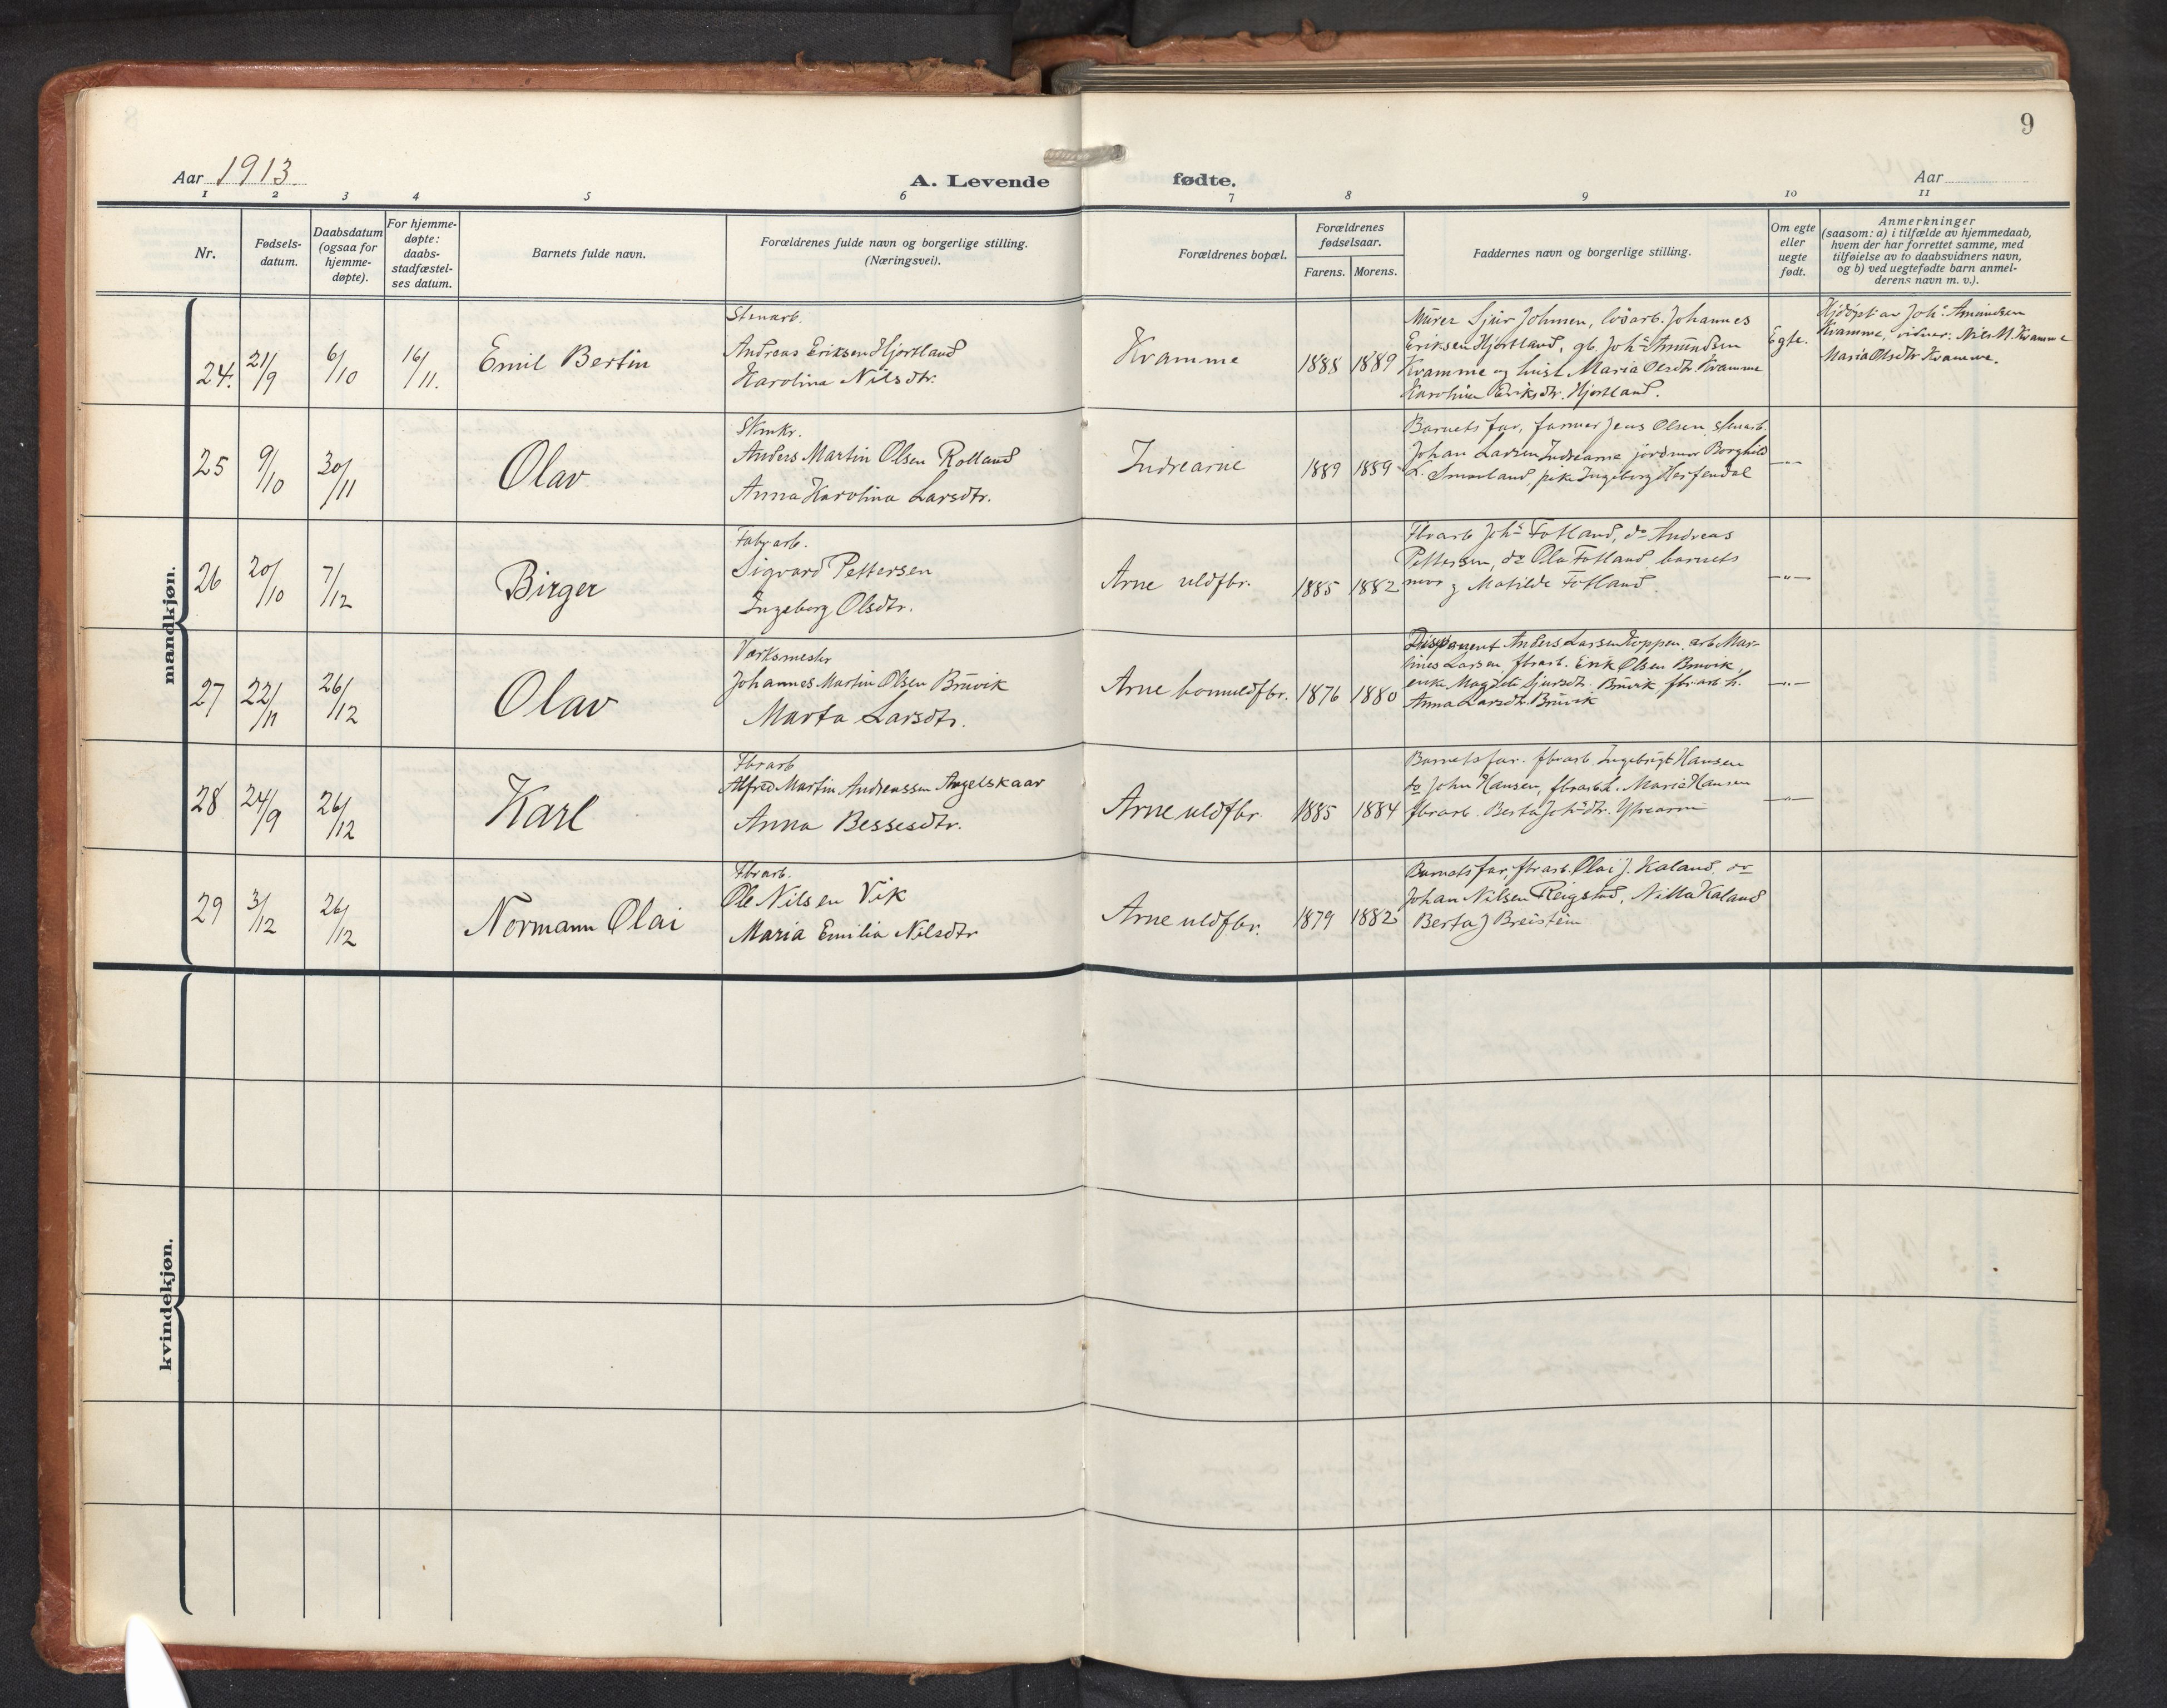 9
Aar 1913.
A. Levende fødte.
Aar
1 2 3 4 5 6 7 8 9 10 11
Nr.
Fødsels-
datum.
Daabsdatum
(ogsaa for
hjemme-
døpte).
For hjemme-
døpte:
daabs-
stadfæstel-
ses datum.
Barnets fulde navn.
Forældrenes fulde navn og borgerlige stilling.
(Næringsvei).
Forældrenes bopæl.
Forældrenes
fødselsaar.
Farens. Morens.
Faddernes navn og borgerlige stilling.
Om egte
eller
uegte
født.
Anmerkninger
(saasom: a) i tilfælde av hjemmedaab,
hvem der har forrettet samme, med
tilføielse av to daabsvidners navn,
og b) ved uegtefødte barn anmel-
derens navn m. v.).
mandkjøn.
24. 21/9 6/10 16/11. Emil Bertin
Stenarb.
Andreas Eriksen Hjortland
Karolina Nilsdtr.
Kvamme 1888 1889
Murer Sjur Johnsen, løsarb. Johannes
Eriksen Hjortland, gb. Johs Amundsen
Kvamme og hust. Maria Olsdtr. Kvamme
Karoline Eriksdtr. Hjortland.
Egte.
Hjdøpt av Johs Amundsen
Kvamme, vidner: Nils M. Kvamme
Maria Olsdtr Kvamme.
25 9/10 30/11 Olav
Anders Martin Olsen Rolland
Anna Karolina Larsdtr.
Indrearne 1889 1889
Barnets far, farmer Jens Olsen, stenarb.
Johan Larsen Indrearne jordmor Borghild
L. Smørland, pike Ingeborg Herfendal
—"—
26 20/10 7/12 Birger
Fabrarb.
Sigvard Pettersen
Ingeborg Olsdtr.
Arne uldfbr. 1885 1882
Fbrarb Johs Fotland, do Andreas
Pettersen, do Ola Fotland, barnets
mor og Matilde Fotland.
—"—
27 22/11 26/12 Olav
Værksmester
Johannes Martin Olsen Bruvik
Marta Larsdtr.
Arne bomuldfbr. 1876 1880
Disponent Anders Larsen Toppen, arb. Mar-
tines Larsen, fbrarb. Erik Olsen Bruvik,
enke Magdeli Sjursdtr. Bruvik fbrarb.h.
Anna Larsdtr. Bruvik
—"—
28 24/9 26/12 Karl
Fbrarb
Alfred Martin Andreassen Angelskaar
Anna Bessesdtr.
Arne uldfbr. 1885 1884
Barnets far. fbrarb. Ingebrigt Hansen
do John Hansen, fbrarb.h. Maria Hansen
fbrarb. Berta Johsdtr. Ytrearne
—"—
29 3/12 26/12 Normann Olai
Fbrarb.
Ole Nilsen Vik
Maria Emilia Nilsdtr
Arne uldfbr. 1879 1882
Barnets far, fbrarb. Olai J. Kaland, do
Johan Nilsen Reigstad, Nilla Kaland
Berta J Breistein
kvindekjøn.